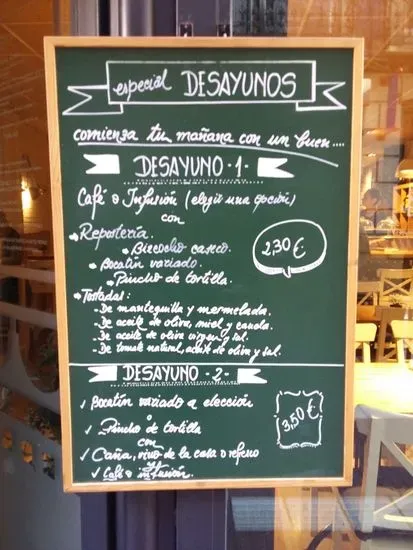 especial DESAYUNOS
comienza tu mañana con un buen....
DESAYUNO -1-
Café o Infusión (elegir una opción)
con
Repostería.
Bizcocho casero.
Bocatín variado.
Pincho de tortilla.
2,30€
Tostadas:
- De mantequilla y mermelada.
- De aceite de oliva, miel y canela.
- De aceite de oliva virgen y sal.
- De tomate natural, aceite de oliva y sal.
DESAYUNO -2-
✓ Bocatín variado a elección
o
✓ Pincho de tortilla
con
✓ Caña, vino de la casa o refresco
✓ Café o infusión.
3,50€